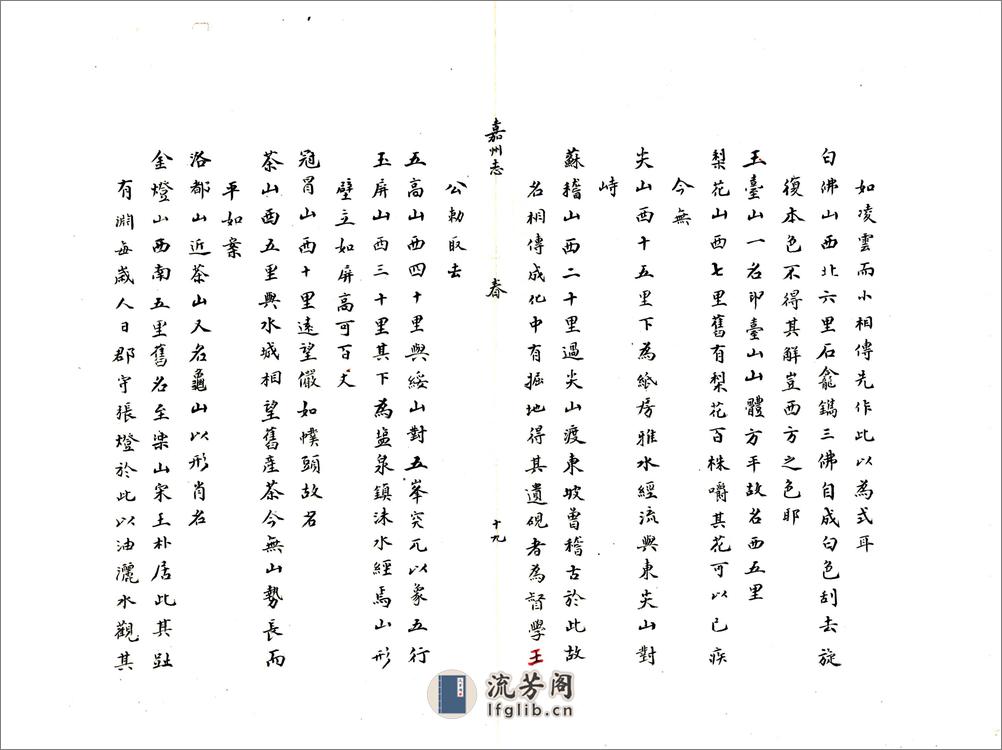 如凌雲而小相傳先作此以為式耳
白佛山西北六里石龕鐫三佛自成白色刮去旋
復本色不得其解豈西方之色耶
玉臺山一名印臺山山體方平故名西五里
梨花山西七里舊有梨花百株嚼其花可以已疾
今無
尖山西十五里下為紙房雅水經流與東尖山對
峙
蘇稽山西二十里過尖山渡東坡曾稽古於此故
名相傳成化中有掘地得其遺硯者為督學王
嘉州志
春
十九
公勅取去
五高山西四十里與綏山對五峯突兀以象五行
玉屏山西三十里其下為盐泉鎮沬水經焉山形
壁立如屏高可百丈
冠冐山西十里遠望儼如幞頭故名
茶山西五里與水城相望舊產茶今無山勢長而
平如案
洛都山近茶山又名龜山以形肖名
金燈山西南五里舊名至樂山宋王朴居此其趾
有淵每歲人日郡守張燈於此以油灑水觀其
流芳阁
lfglib.cn